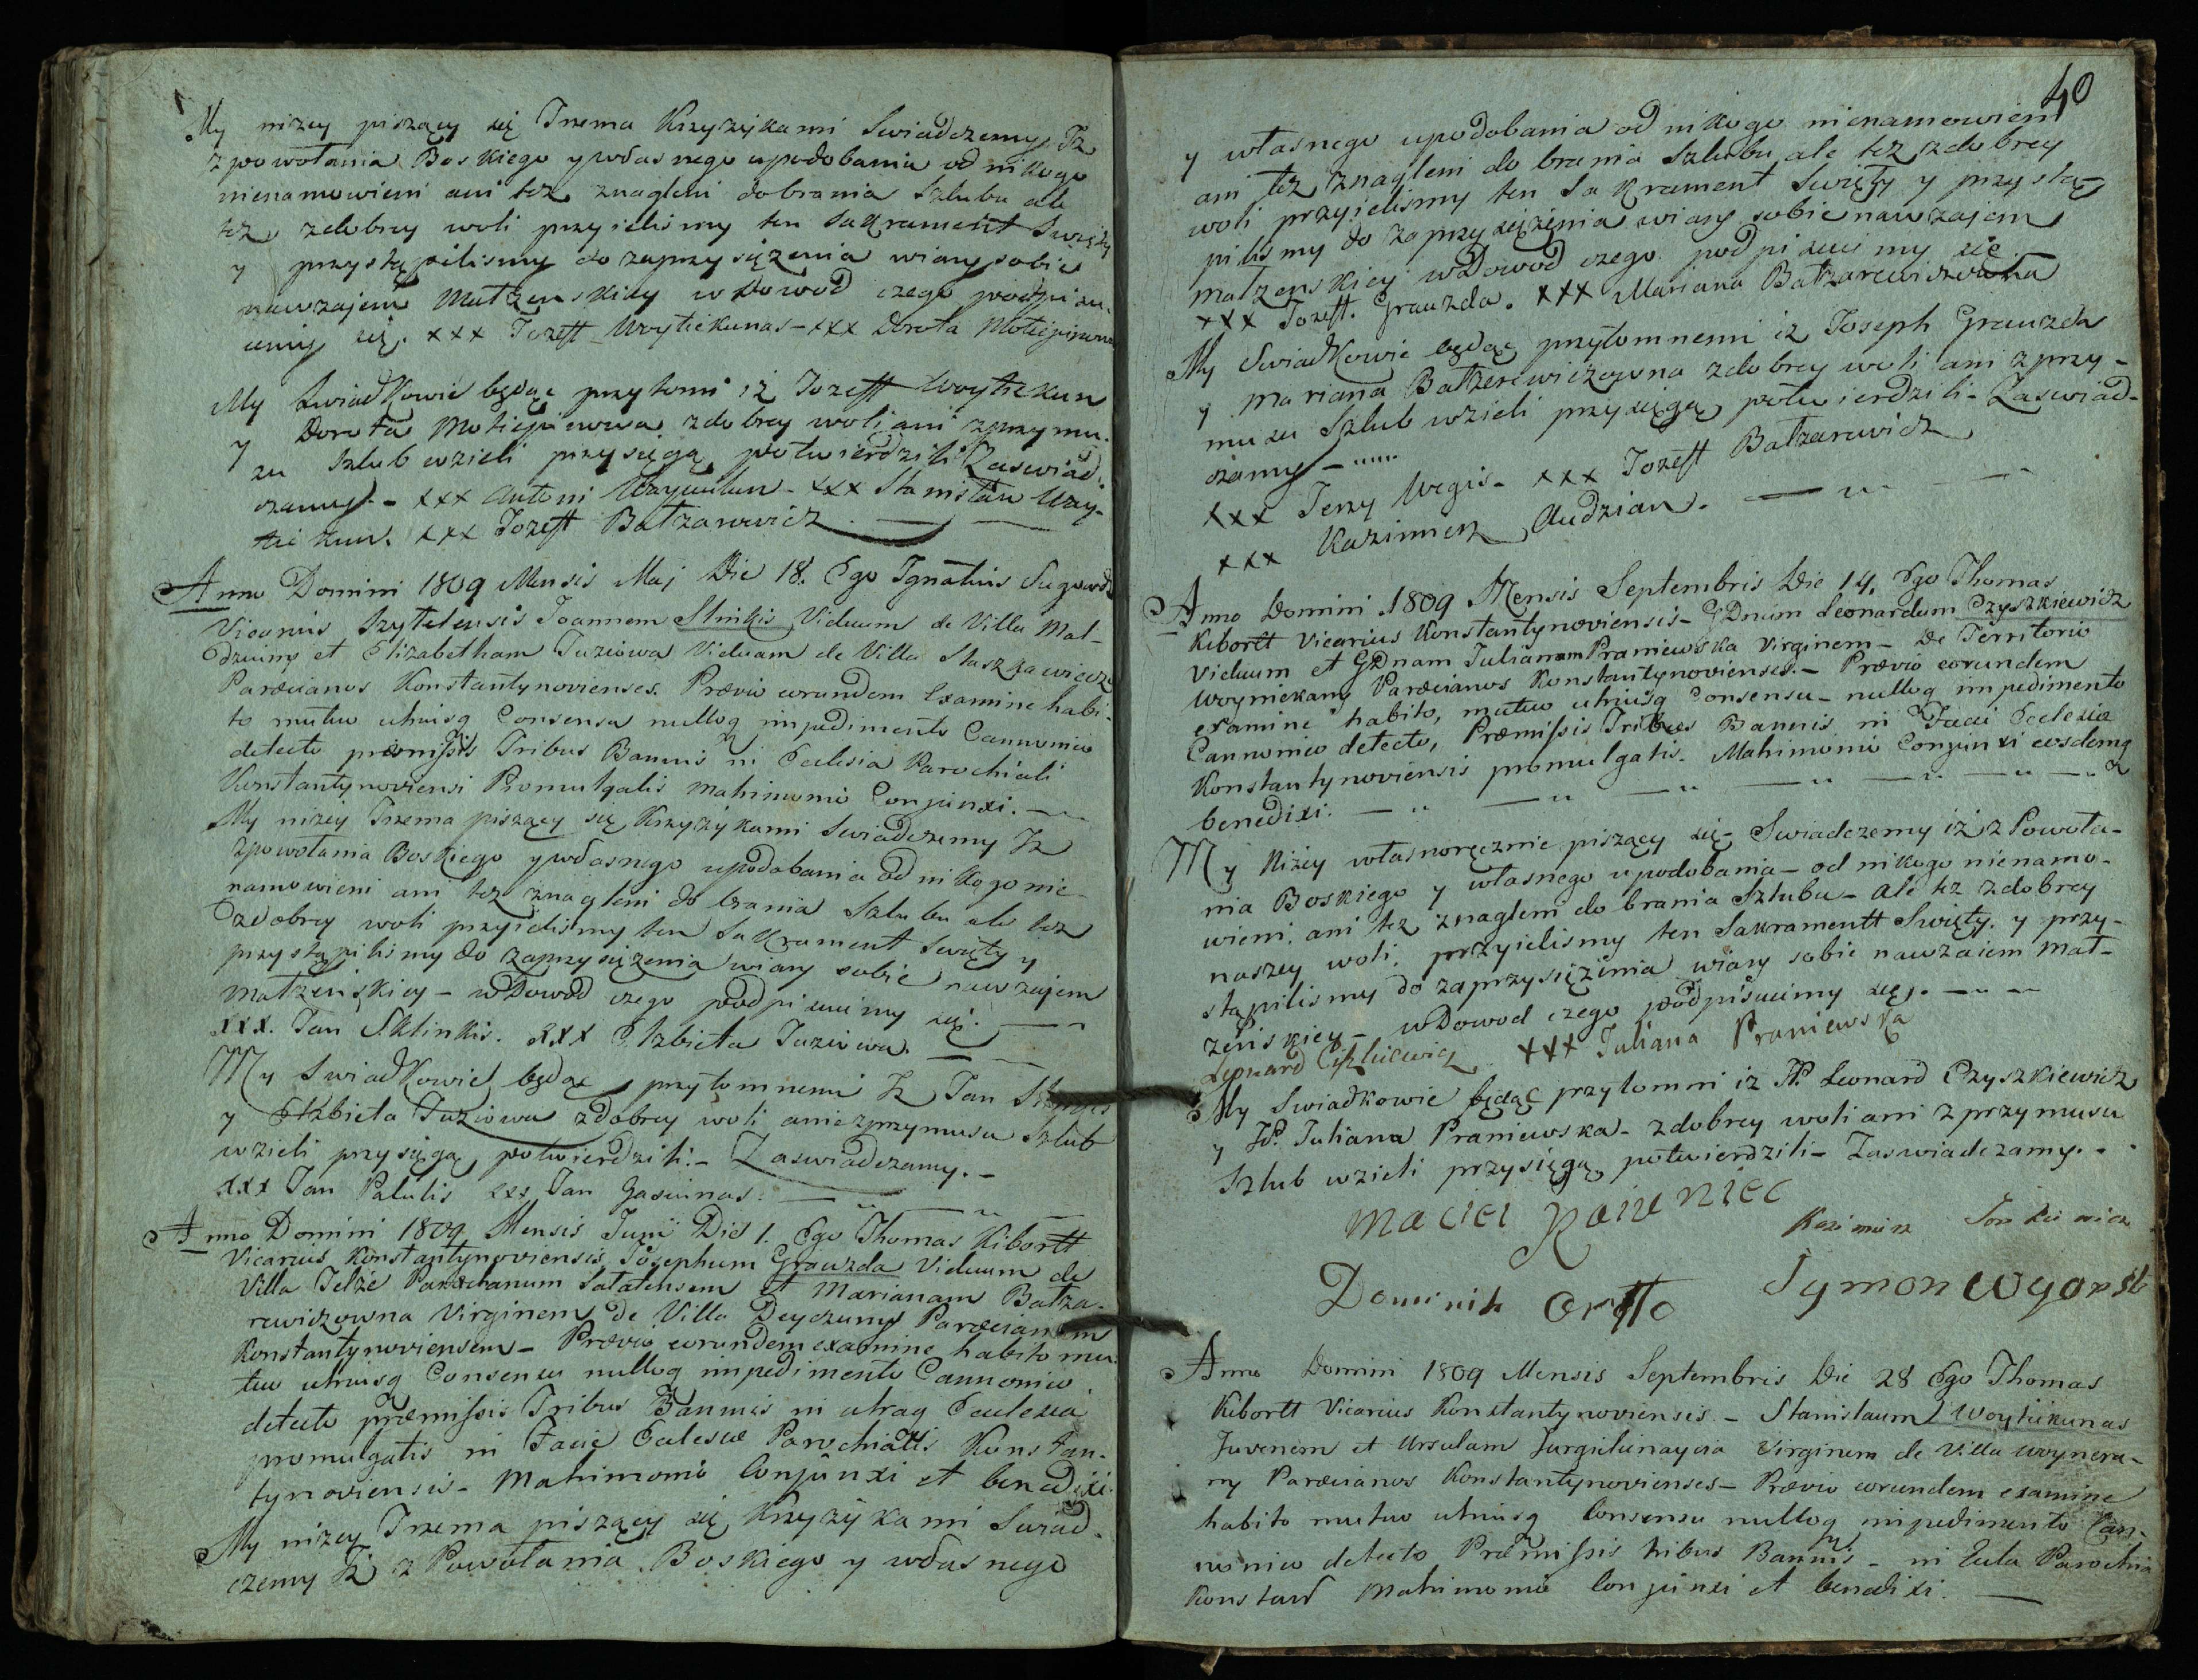 My nizey piszący się Trzema Krzyzykami Swiadczemy Iz
z powołania Boskiego y własnego upodobania od nikogo
nienamowieni ani tez znagleni do brania Szlubu ale
tez z dobrey woli przyieliśmy ten Sakrament Swięty
y przystąpilismy do zaprzysięzenia wiary sobie
nawzajem Matzenskiey w Dowod czego podpisu-
iemy się. xxx Jozeff Woytiekunas - xxx Dorota Motiejunowna
My Swiadkowie będąc przytomi iz Jozeff Woytiekun
y Dorota Motiejunowna z dobrey woli ani z przymu-
zu Szlub wzieli przysięgą potwierdzili Zaswiad-
czamy. - xxx Antoni - xxx Stanisław Woy-
tiekun. xxx Jozeff Bałzarewicz.
Anno Domini 1809 Mensis Maj Die 18. Ego Ignatius
Vicarius Szytelensis Joannem Slinkis Viduum de Villa Mal-
dziuny et Elizabetham Juziowa Viduam de Villa
Paræcianos Konstantynovienses. Prævio eorundem Examine habi-
to mutuo utriusq Consensu nulloq impedimento Cannonico
detecto præmissis Tribus Bannis in Eclesia Parochiali
Konstantynoviensi Promulgatis Matrimonio Conjunxi.
My nizey Trzema piszący się Krzyzykami Swiadczemy Iz
z powołania Boskiego y własnego upodobania od nikogo nie-
namowieni ani tez znagleni do brania Szlubu ale tez
z dobrey woli przyieliśmy ten Sakrament Swięty y
przystąpilismy do zaprzysięzenia wiary sobie nawzajem
Matzeńskiey - w Dowod czego podpisuiemy się.
xxx. Jan Sklinkis. xxx Elzbieta Juziowa.
My Swiadkowie będąc przytomnemi Iz Jan
y Elzbieta Juziowa z dobrey woli ani z przymusu Szlub
wzieli przysięgą potwierdzili. - Zaswiadczamy. -
xxx Jan Palulis xxx Jan Gasiunas.
Anno Domini 1809 Mensis Junii Die 1. Ego Thomas Kibortt
Vicarius Konstantynoviensis Josephum Grauzda Viduum de
Villa Jelze Paræcianum Salatensem et Marianam Bałza-
rewiczowna Virginem De Villa Deyczuny Paræcianam
Konstantynoviensem - Prævio eorundem examine habito mu-
tuo utriusq Consensu nulloq impedimento Cannonico
detecto præmissis Tribus Bannis in utraq Eculesia
promulgatis in Facie Eclesiæ Parochialis Konstan-
tynoviensis - Matrimonio Conjunxi et benedixi.
My nizey Trzema piszący się Krzyzykami Swiad-
czemy Iz z Powołania Boskiego y własnego
40
y własnego upodobania od nikogo nienamowieni
ani tez znagleni do brania Szlubu ale tez z dobrey
woli przyieliśmy ten Sakrament Swięty y przystą-
pilismy do zaprzysięzenia wiary sobie nawzajem
matzenskiey w Dowod czego podpisuiemy się
xxx Jozeff. Grauzda. xxx Mariana Bałzarewiczowna
My Swiadkowie będąc przytomnemi iz Joseph Grauzda
y Mariana Bałzerewiczowna z dobrey woli ani z przy-
musu Szlub wzieli przysięgą potwierdzili - Zaswiad-
czamy -
xxx Jerzy Wegis - xxx Jozeff Bałzarewicz
xxx Kazimierz Audzian.
Anno Domini 1809 Mensis Septembris Die 14. Ego Thomas
Kibortt Vicarius Konstantynoviensis - GDnum Leonardum Czyszkiewicz
Viduum et GDnam Julianam Praniewska Virginem - De Territorio
Woymekany Paræcianos Konstantynovienses. - Prævio eorundem
examine habito, mutuo utriusq Consensu - nulloq impedimento
Cannonico detecto, Præmissis Tribus Bannis in Faci Eclesiæ
Konstantynoviensis promulgatis. Matrimonio Conjunxi eosdemq
benedixi.
My Nizey własnoręcznie piszący się - Swiadczemy iz z Powoła-
nia Boskiego y własnego upodobania - od nikogo nienamo-
wieni. ani tez znagleni do brania Szlubu - ale tez z dobrey
naszey woli. przyielismy ten Sakramentt Swięty. y przy-
stąpilismy do zaprzysięzenia wiary sobie nawzaiem mat-
zeńskiey - w Dowod czego podpisuiemy się.
Leonard Czyszkiewicz xxx Juliana Praniewska
My Swiadkowie będąc przytomni iz JP. Leonard Czyszkiewicz
y JP. Juliana Praniewska - z dobrey woli ani z przymusu
Szlub wzieli przysięgą, potwierdzili - Zaswiadczamy.
Maciei Kazimierz
Dominik Symon
Anno Domini 1809 Mensis Septembris Die 28 Ego Thomas
Kibortt Vicarius Konstantynoviensis. - Stanislaum Woytiekunas
Juvenem et Ursulam Virginem de Villa
Paræcianos Konstantynovienses - Prævio eorundem examine
habito mutuo utriusq Consensu nulloq impedimento Can-
nonico detecto Præmissis tribus Bannis - in Ecla Parochia
Konstan Matrimonio Conjunxi et benedixi.